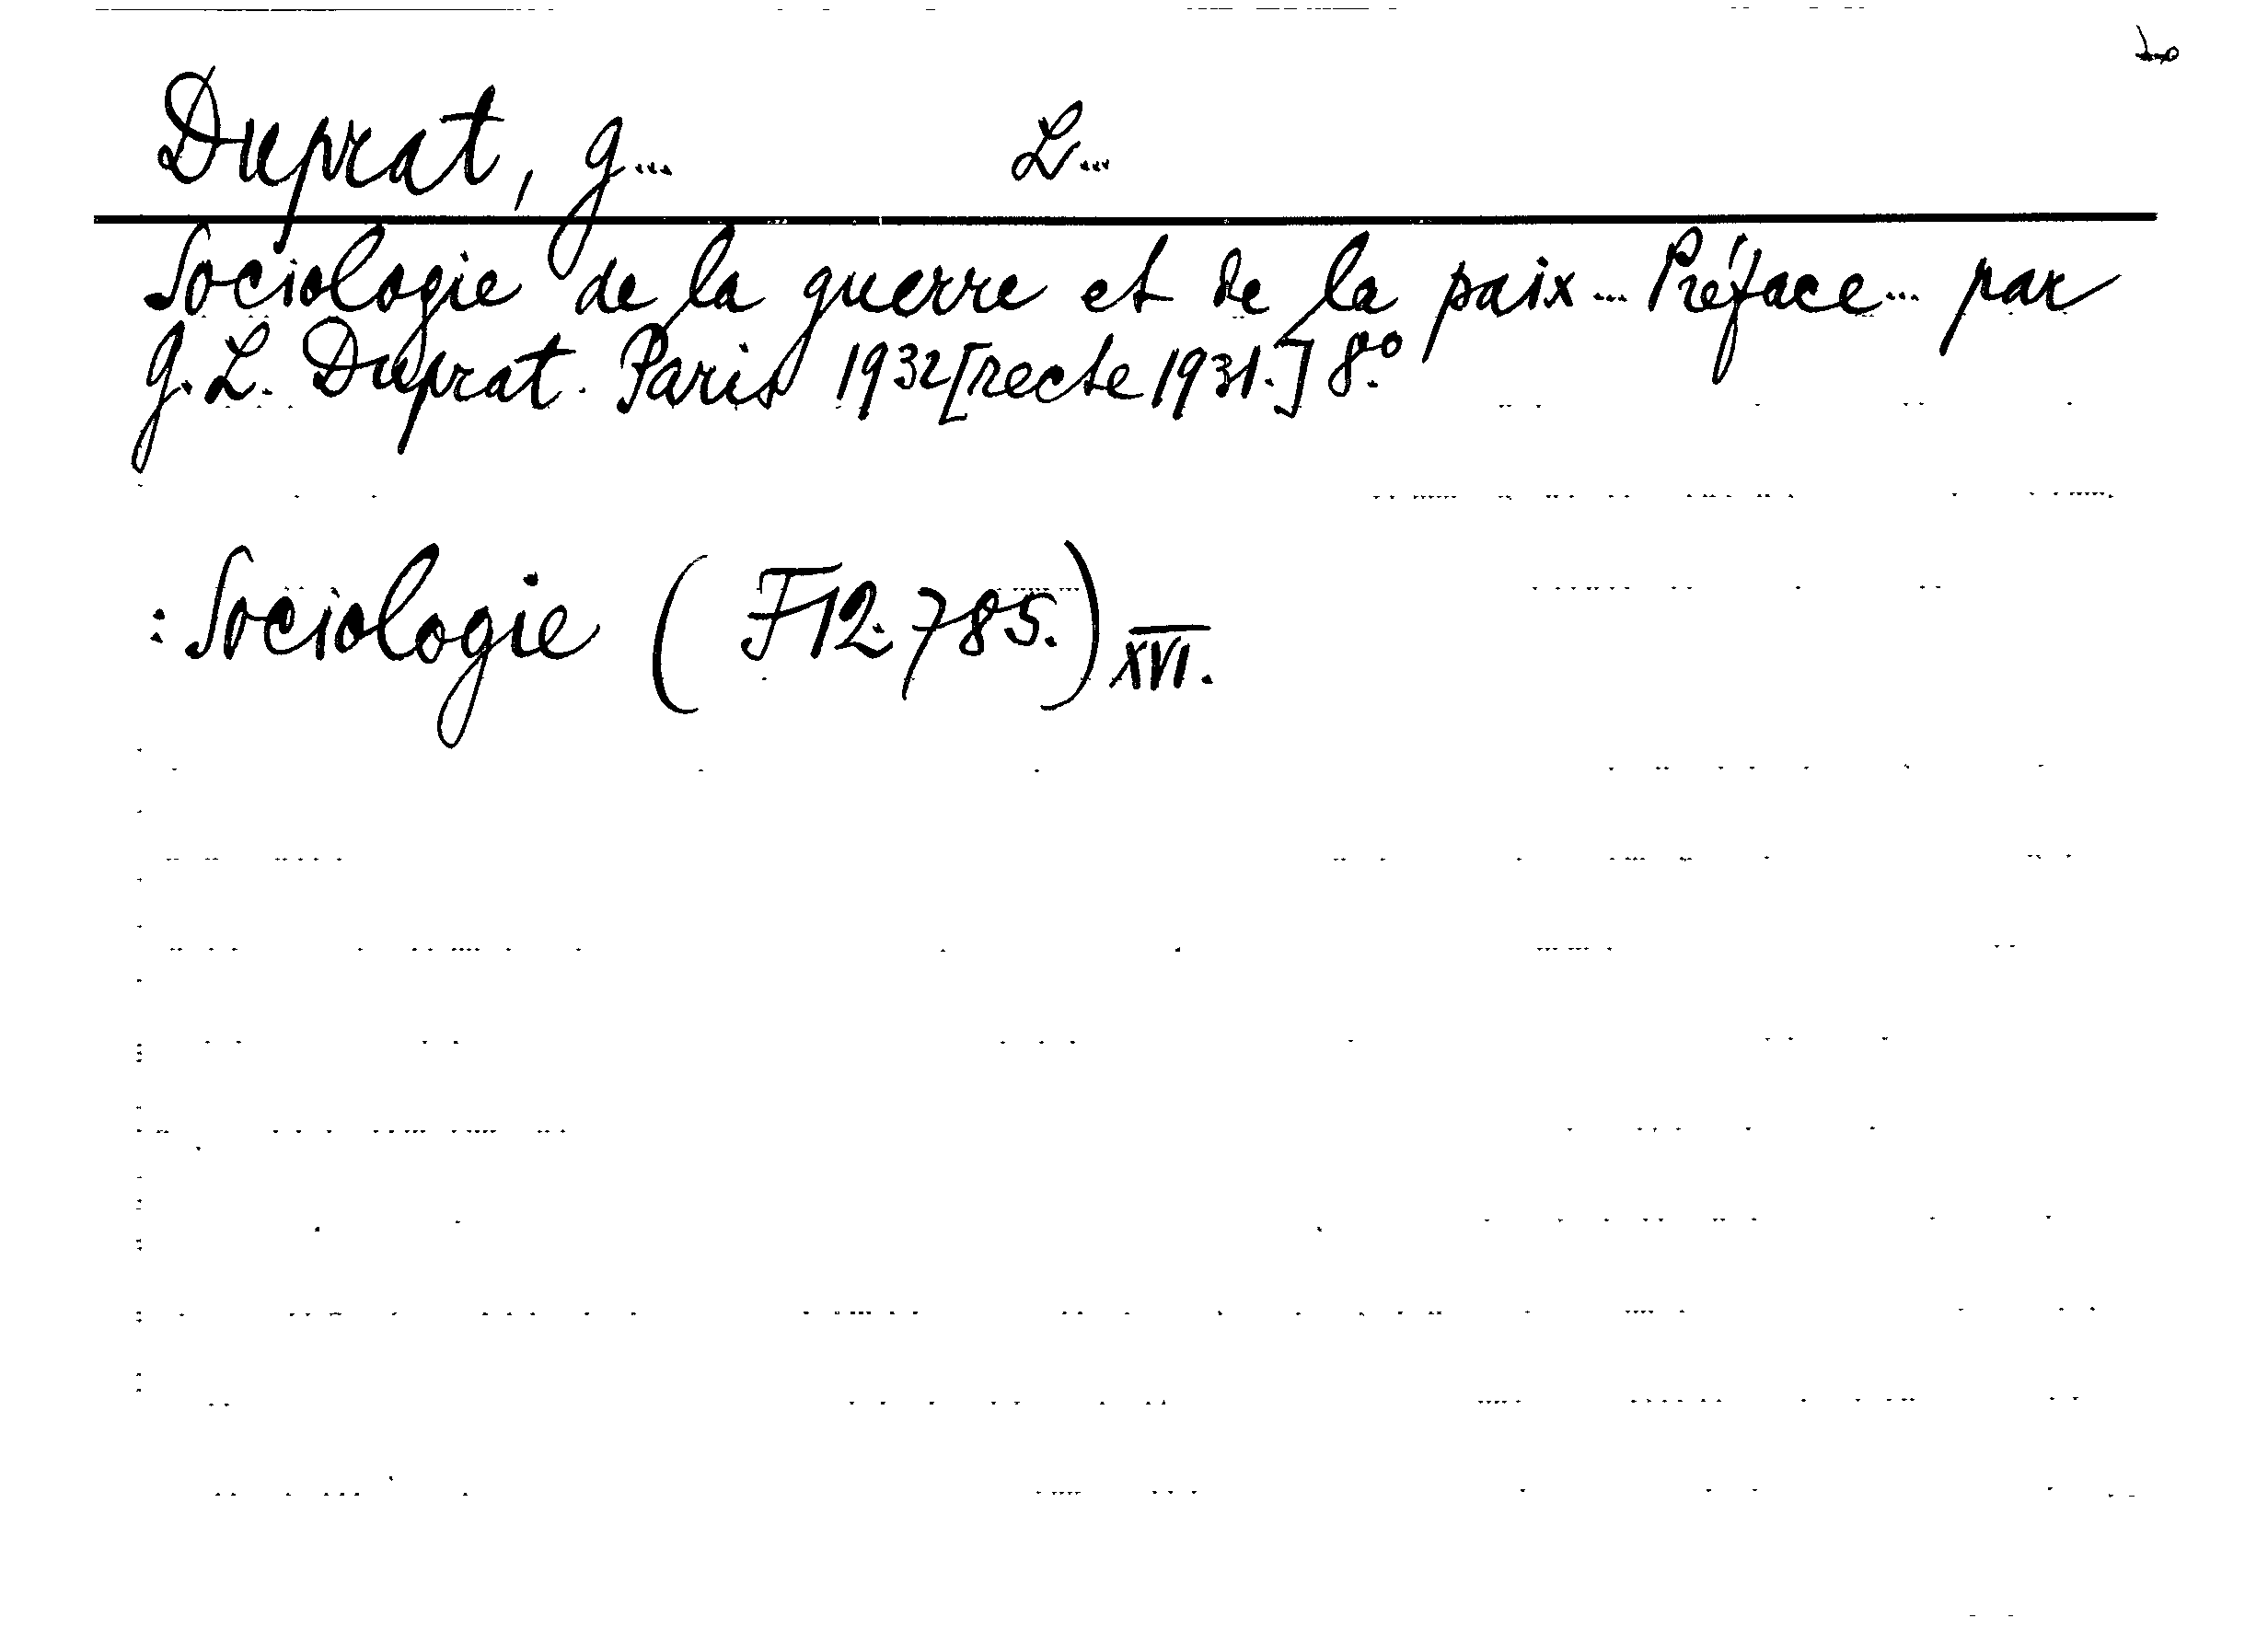 Duprat, G... L...
Sociologie de la guerre et de la paix... Préface... par
G. L. Duprat. Paris 1932 [recte 1931.] 8.°
: Sociologie (F12.785.) XVI.